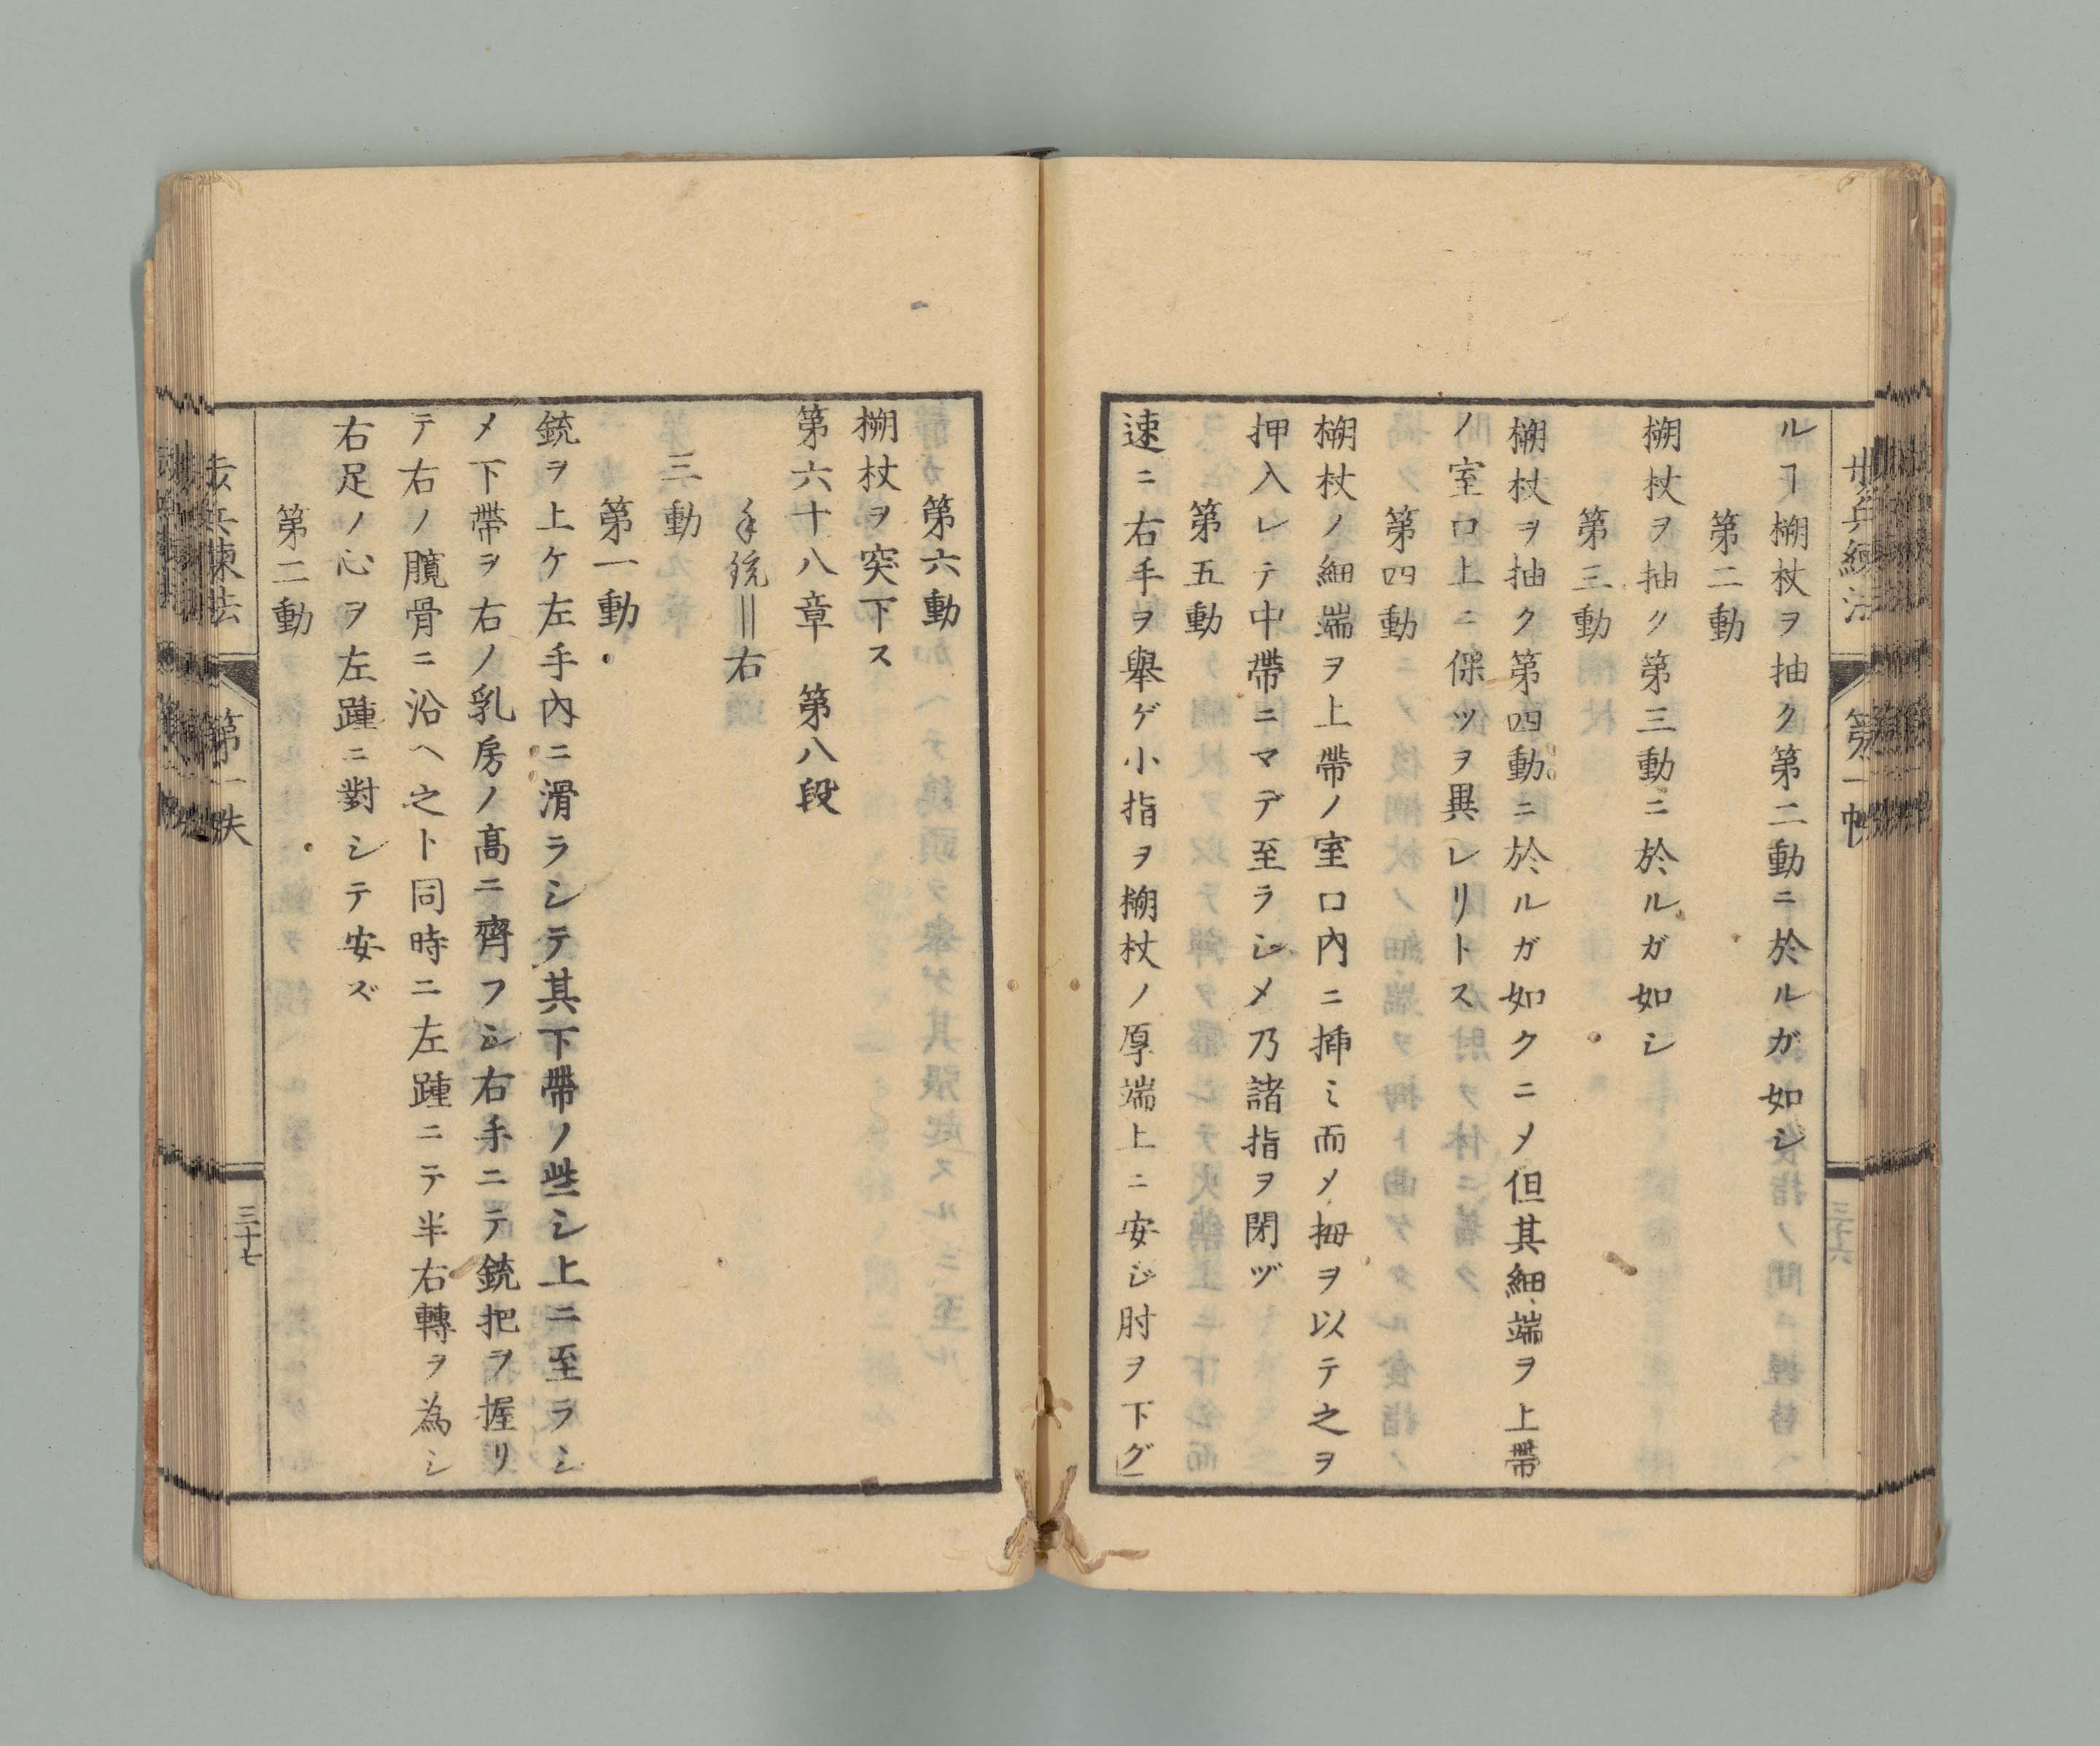 ルヿ槊杖ヲ抽ク第二動ニ於ルガ如シ
第二動
槊杖ヲ抽ク第三動ニ於ルガ如シ
第三動
槊杖ヲ抽ク第四動ニ於ルガ如クニメ但其細端ヲ上帶
ノ室口上ニ保ツヲ異レリトス
第四動
槊杖ノ細端ヲ上帶ノ室口內ニ挿ミ而メ拇ヲ以テ之ヲ
押入レテ中帶ニマデ至ラシメ乃諸指ヲ閉ヅ
第五動
速ニ右手ヲ擧ゲ小指ヲ槊杖ノ厚端上ニ安シ肘ヲ下グ
第六動
槊杖ヲ突下ス
第六十八章　第八段
手銃〢右
三動
第一動
銃ヲ上ケ左手內ニ滑ラシテ其下帶ノ些シ上ニ至ラシ
メ下帶ヲ右ノ乳房ノ高ニ齊フシ右手ニテ銃把ヲ握リ
テ右ノ臗骨ニ沿ヘ之ト同時ニ左踵ニテ半右轉ヲ為シ
右足ノ心ヲ左踵ニ對シテ安ズ
第二動
步兵練法　第一帙
三十七